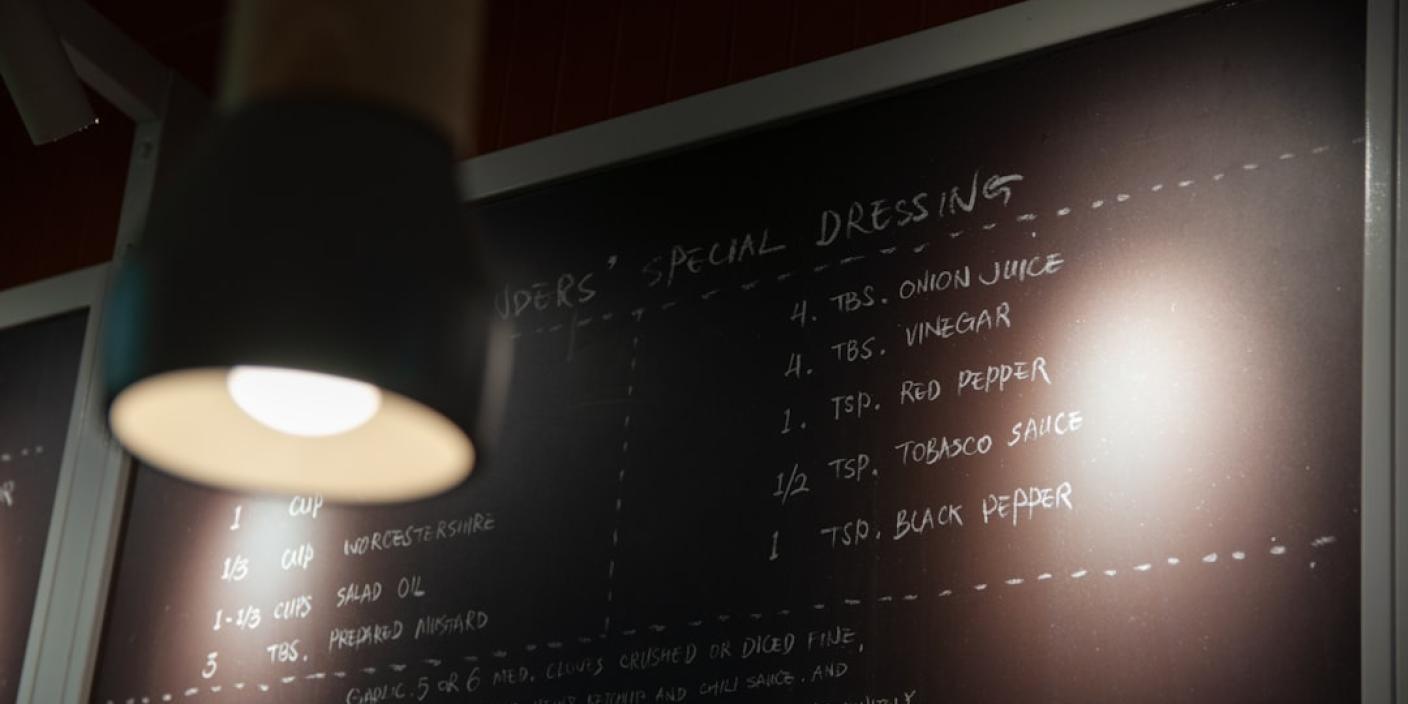 SPECIAL DRESSING
1 CUP
1/3 CUP WORCESTERSHIRE
1-1/3 CUPS SALAD OIL
3 TBS. PREPARED MUSTARD
4. TBS. ONION JUICE
4. TBS. VINEGAR
1. TSP. RED PEPPER
1/2 TSP. TOBASCO SAUCE
1 TSP. BLACK PEPPER
GARLIC. 5 OR 6 MED. CLOVES CRUSHED OR DICED FINE,
KETCHUP AND CHILI SAUCE. AND